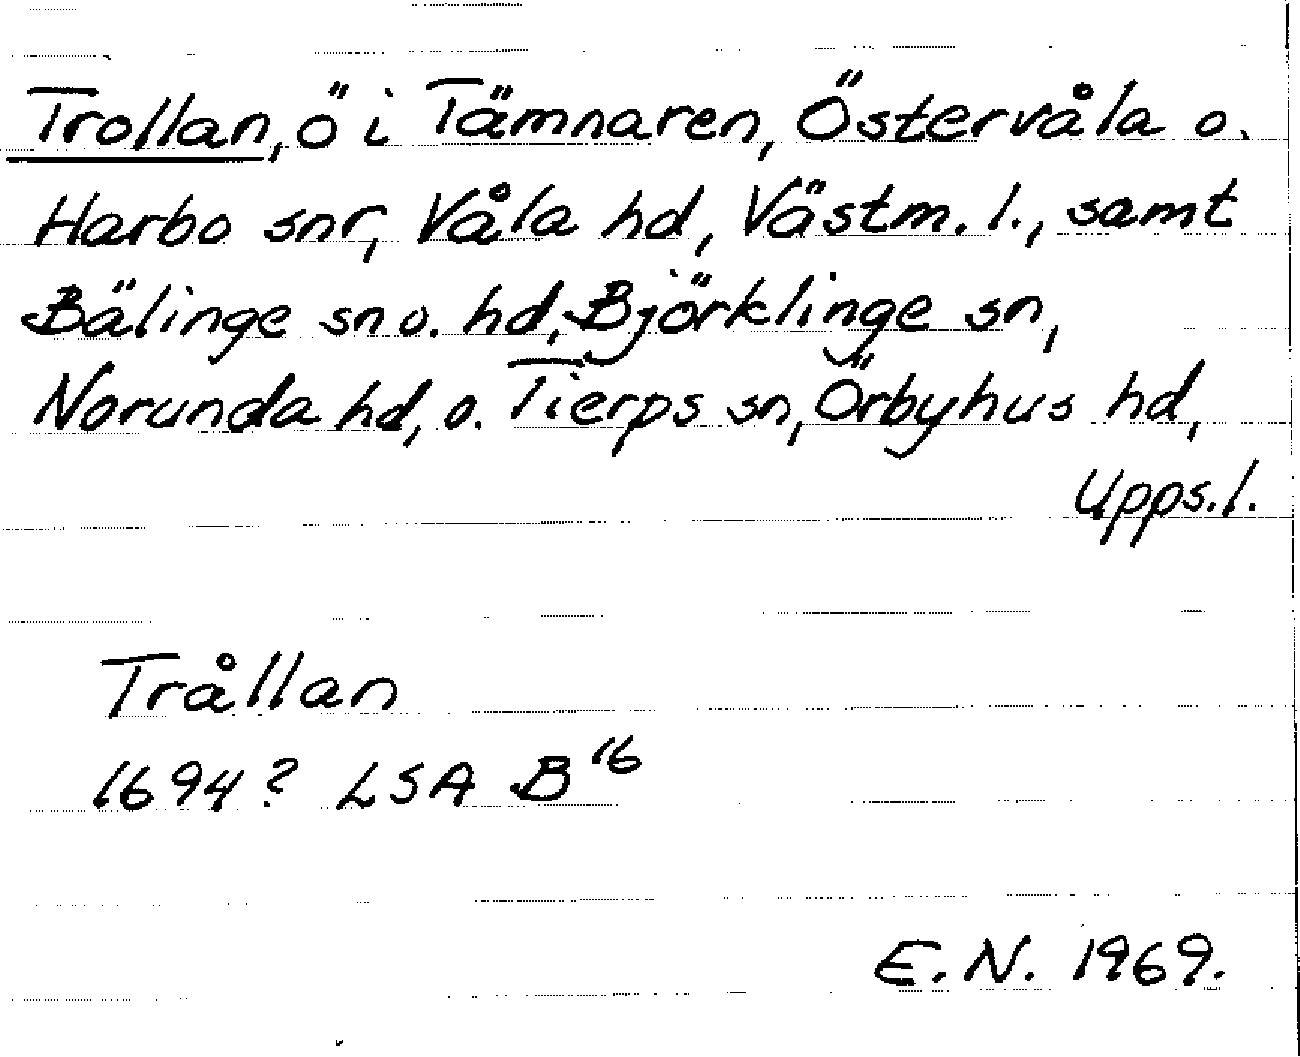 Trollan, ö i Tämnaren, Östervåla o.
Harbo snr, Våla hd, Västm. l., samt
Bälinge sn o. hd, Björklinge sn,
Norunda hd, o. Tierps sn, Örbyhus hd,
Upps. l.
Trållan
1694? LSA B16
E. N. 1969.